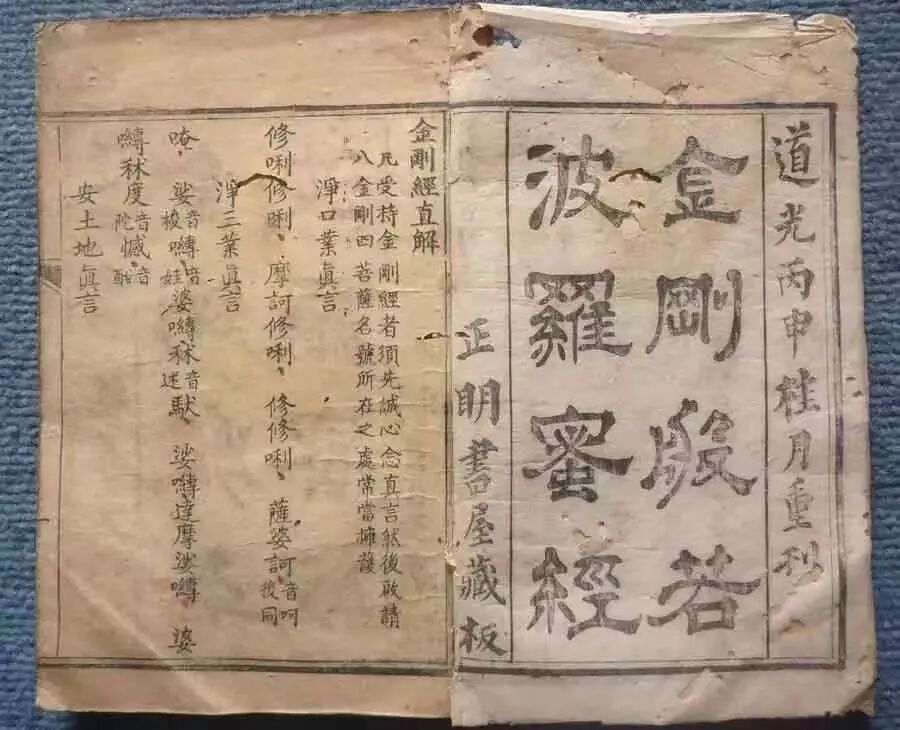 道光丙申桂月重刊
金剛般若
波羅蜜經
正明書屋藏板
金剛經直解
凡受持金剛經者須先誠心念真言然後啟請
八金剛四菩薩名號所在之處常當擁護
淨口業眞言
修唎修唎、摩訶修唎、修修唎、薩婆訶音呵後同
淨三業眞言
唵、娑音梭嚩音娃婆嚩秫音述馱、娑嚩達摩娑嚩婆
嚩秫度音陀憾音酣
安土地眞言